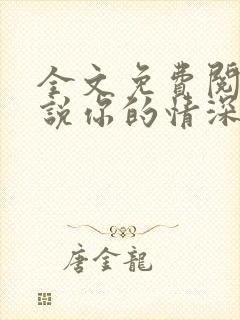 全文免費閱
說你的情深
唐金龍